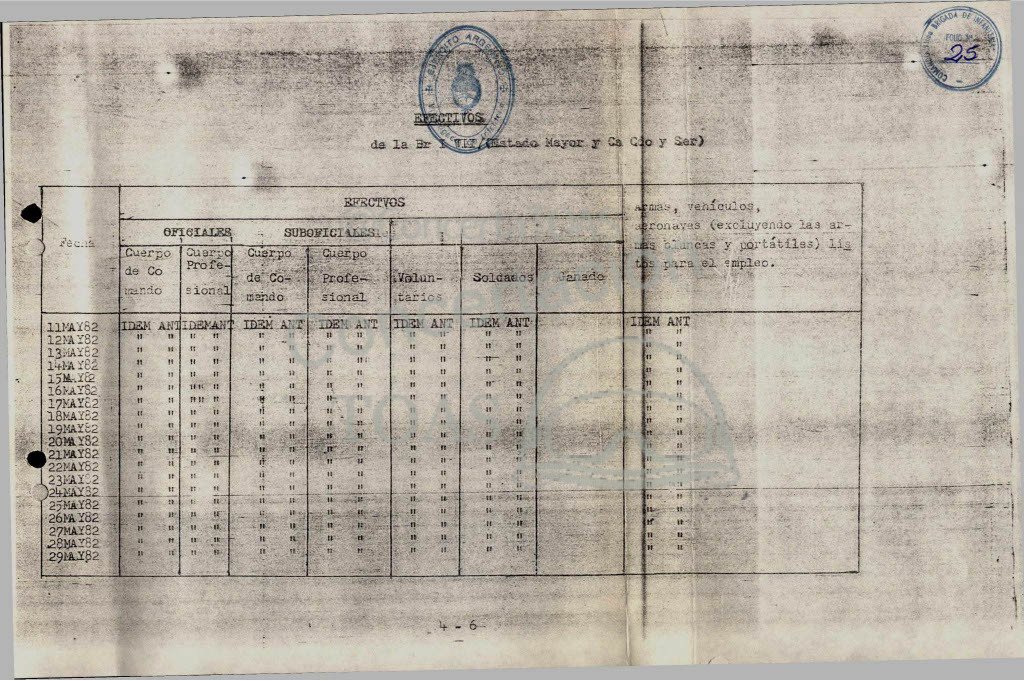 EJERCITO ARGENTINO
BRIGADA DE INFANTERIA
FOLIO Nº
25
EFECTIVOS
de la Br I VII (Estado Mayor y Ca Cdo y Ser)
Fecha
EFECTVOS
Armas, vehículos,
aeronaves (excluyendo las ar-
mas blancas y portátiles) lis
tos para el empleo.
OFICIALES SUBOFICIALES:
Cuerpo de Co mando
Cuerpo Profe- sional
Cuerpo de Co- mando
Cuerpo Profe- sional
Volun- tarios
Soldados
Ganado
11MAY82 IDEM ANT IDEMANT IDEM ANT IDEM ANT IDEM ANT IDEM ANT IDEM ANT
12MAY82 " " " " " " " " " " " " " "
13MAY82 " " " " " " " " " " " " " "
14MAY82 " " " " " " " " " " " " " "
15MAY82 " " " " " " " " " " " " " "
16MAY82 " " "" " " " " " " " " " " "
17MAY82 " " "" " " " " " " " " " " "
18MAY82 " " " " " " " " " " " " " "
19MAY82 " " " " " " " " " " " " " "
20MAY82 " " " " " " " " " " " " " "
21MAY82 " " " " " " " " " " " " " "
22MAY82 " " " " " " " " " " " " " "
23MAY82 " " " " " " " " " " " " " "
24MAY82 " " " " " " " " " " " " " "
25MAY82 " " " " " " " " " " " " " "
26MAY82 " " " " " " " " " " " " " "
27MAY82 " " " " " " " " " " " " " "
28MAY82 " " " " " " " " " " " " " "
29MAY82 " " " " " " " " " " " " " "
4 - 6